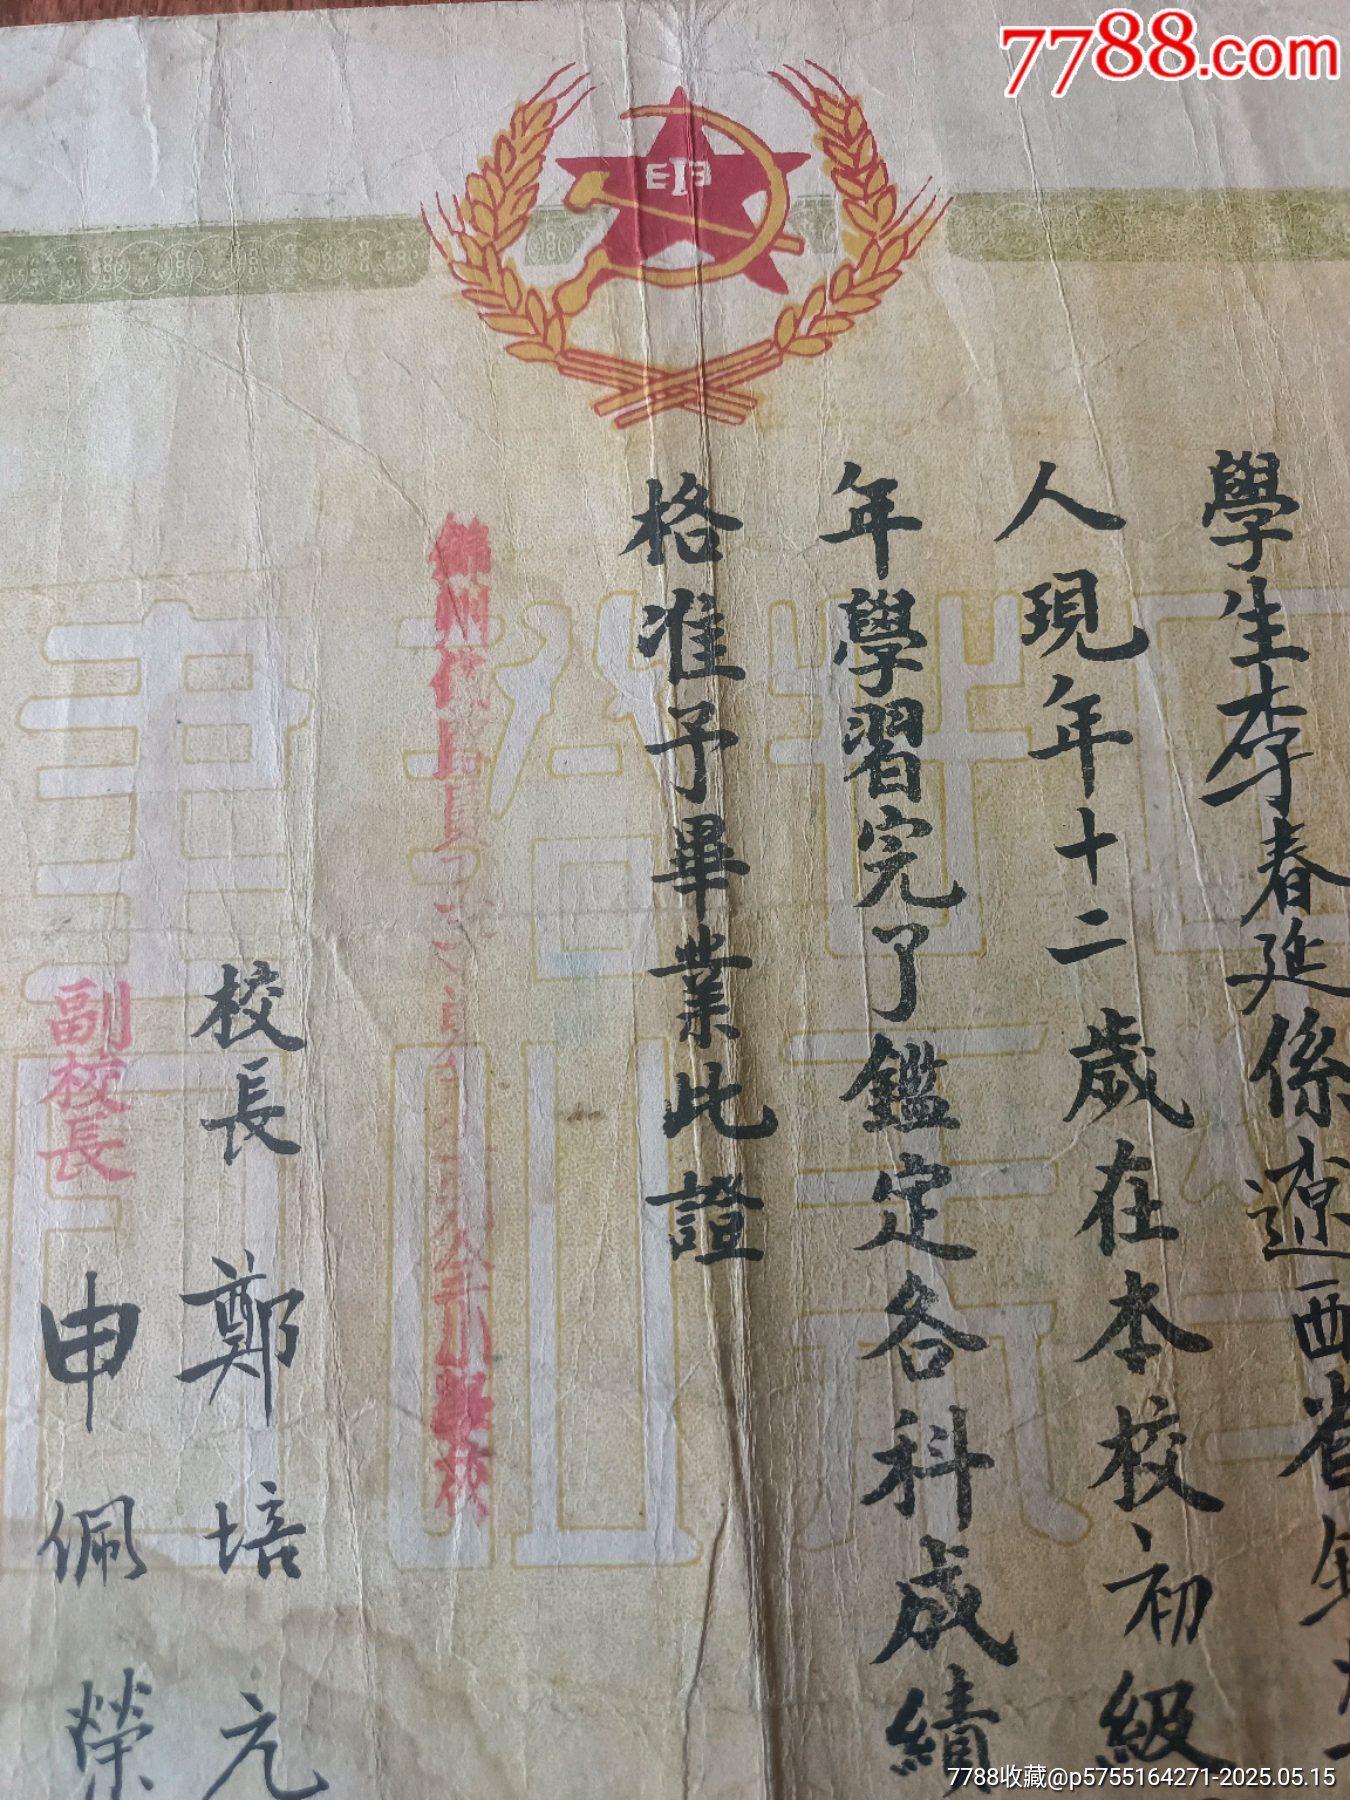 7788.com
學生李春延係遼西省錦
人現年十二歲在本校初級
年學習完了鑑定各科成績
格准予畢業此證
錦州 小學校
校長 鄭培元
副校長 申佩榮
7788收藏@p5755164271-2025.05.15